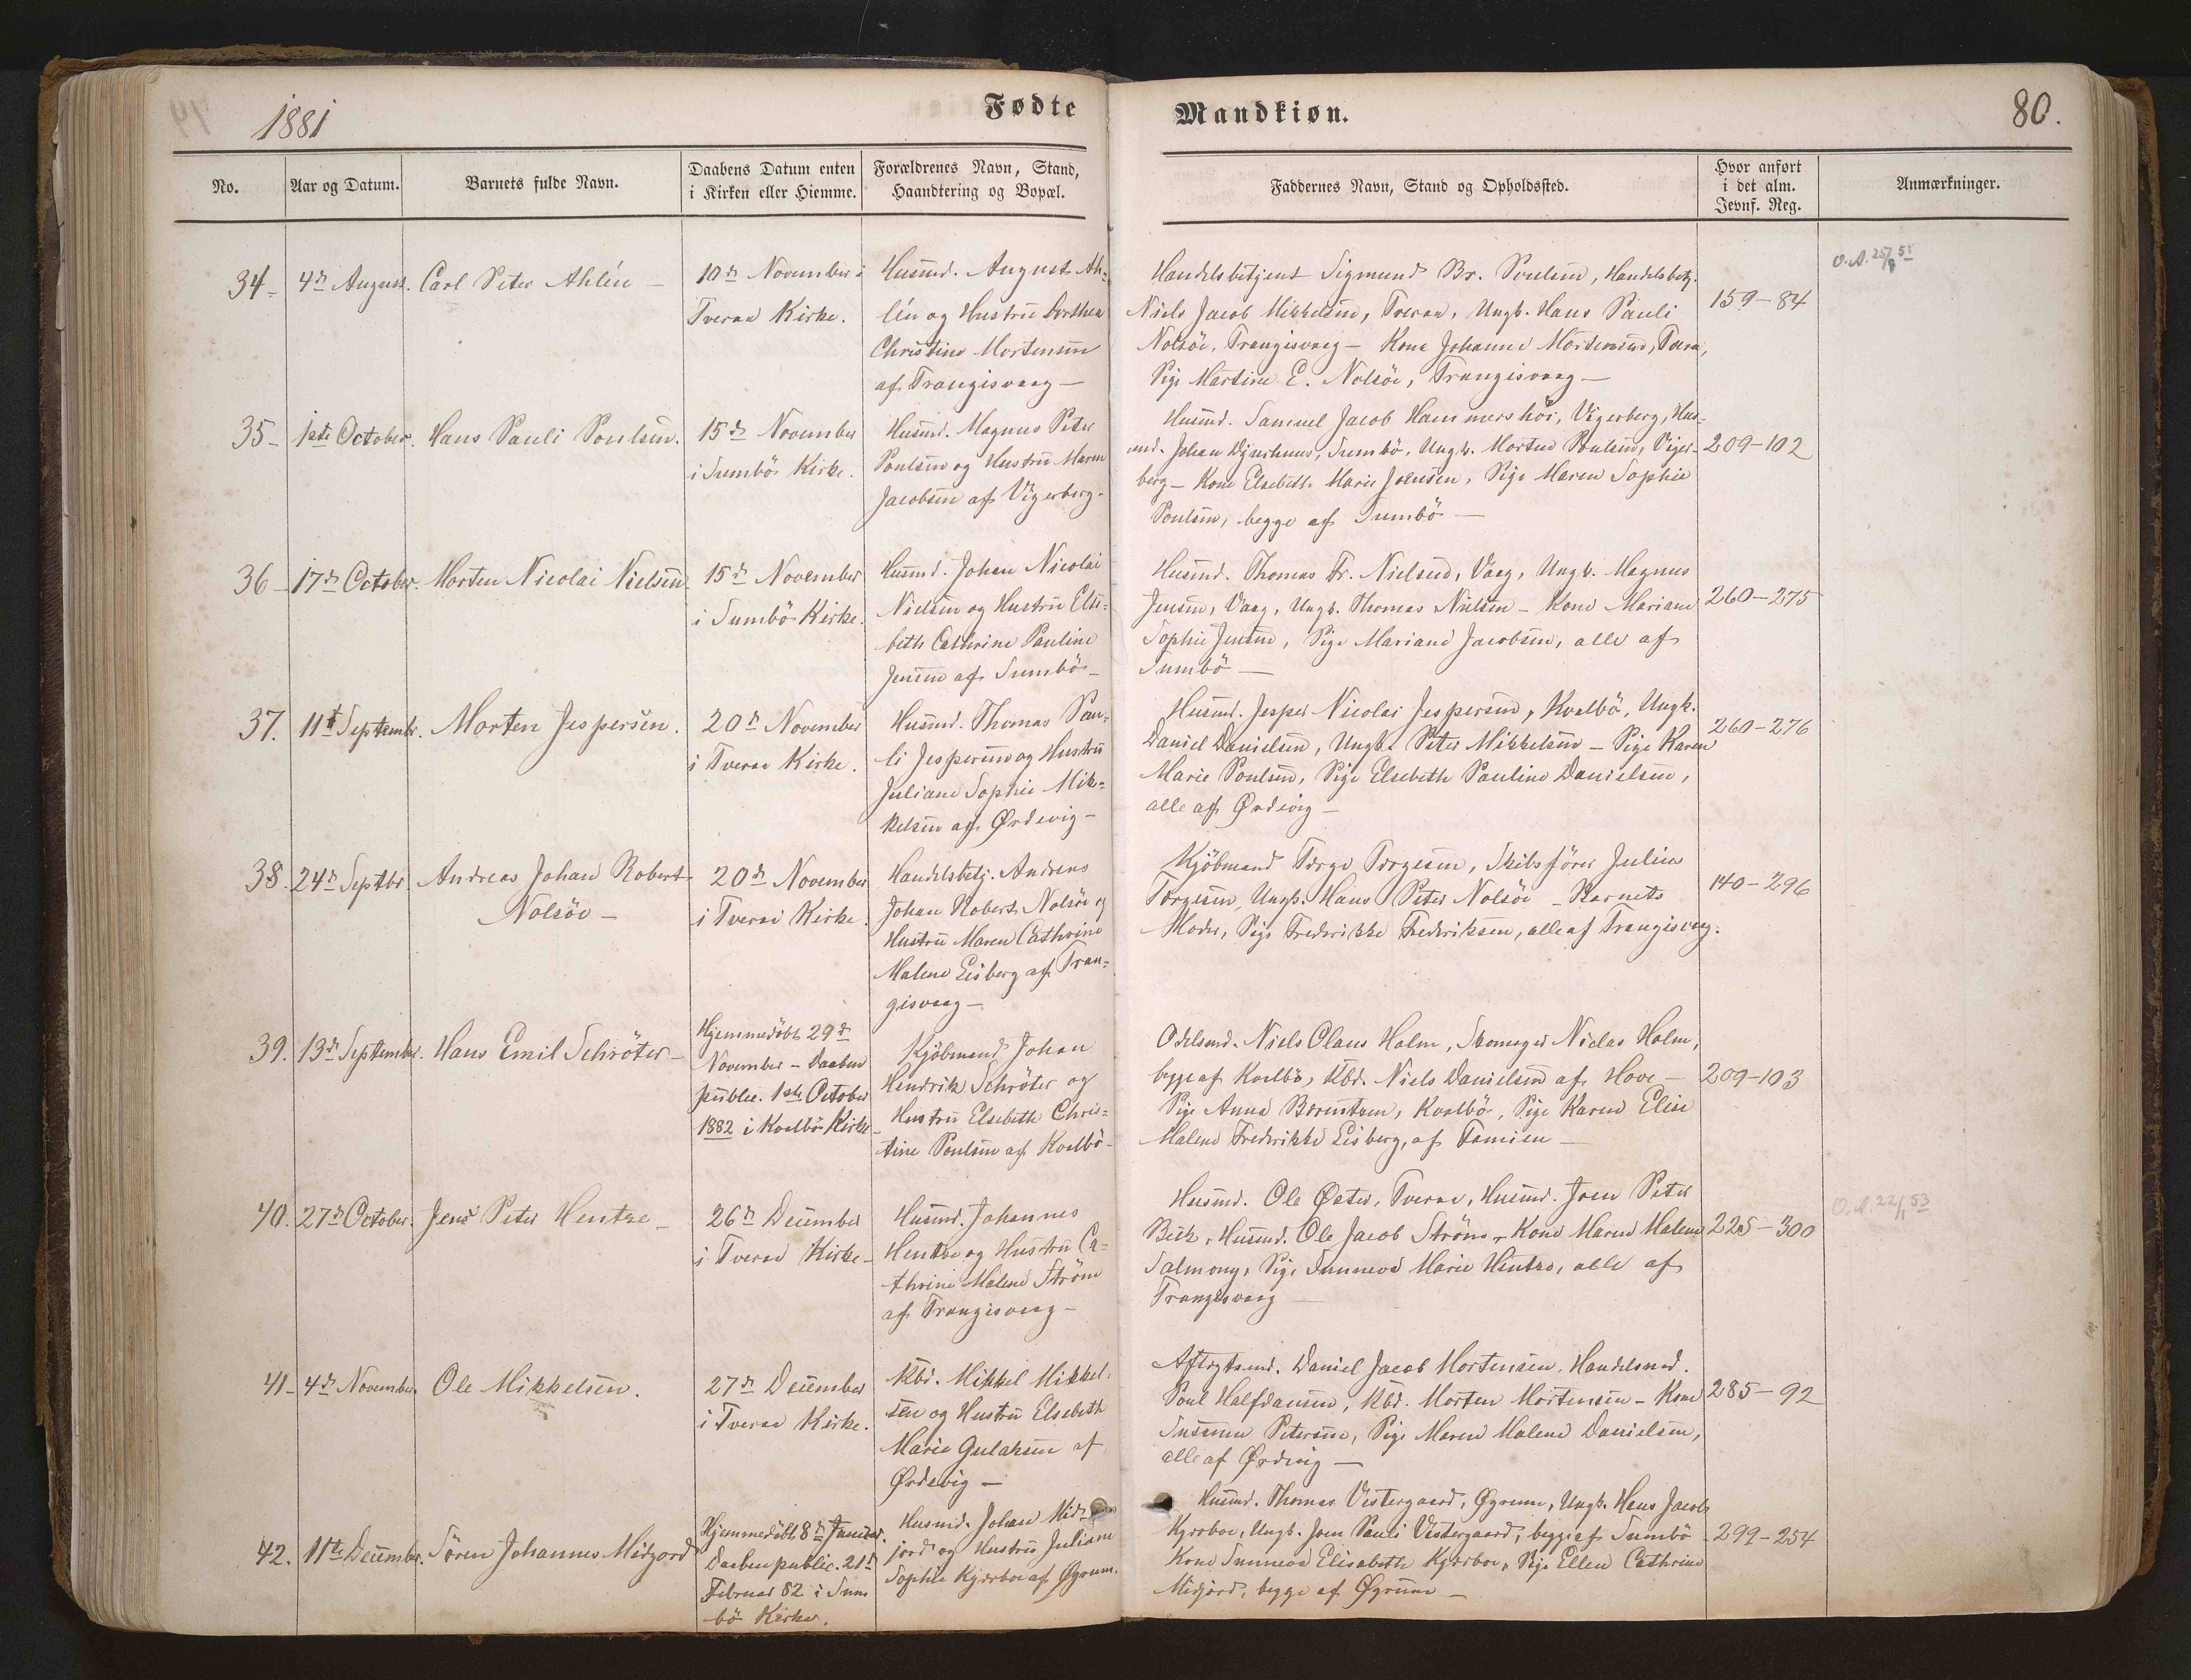 1881
Fødte
No.
Aar og Datum.
Barnets fulde Navn.
Daabens Datum enten
i Kirken eller Hiemme.
Forældrenes Navn, Stand,
Haandtering og Bopæl.
34
4de August.
Carl Peter Ahlén
10de November i
Tveraa Kirke.
Husmd. August Ah-
lén og Hustru Dorthea
Christine Mortensen
af Trangisvaag
35
1ste October.
Hans Pauli Poulsen.
15de November
i Sumbö Kirke.
Husmd. Magnus Peter
Poulsen og Hustru Maren
Jacobsen af Vigerberg
36
17de October.
Morten Nicolai Nielsen
15de November
i Sumbö Kirke.
Husmd. Johan Nicolai
Nielsen og Hustru Else-
beth Cathrine Pauline
Jensen af Sumbö
37.
11te Septembr.
Morten Jespersen.
20de November
i Tveraa Kirke.
Husmd. Thomas Pau-
li Jespersen og Hustru
Juliane Sophie Mik-
kelsen af Ørdevig
38.
24de Septbr
Andreas Johan Robert
Nolsöe
20de November
i Tveraa Kirke.
Handelsbetj. Andreas
Johan Robert Nolsöe og
Hustru Maren Cathrine
Malene Eisberg af Tran-
gisvaag
39.
13de September.
Hans Emil Schröter
Hjemmedöbt 29de
November - Daaben
public. 1ste October
1882 i Kvalbö Kirke
Kjöbmand Johan
Hendrik Schröter og
Hustru Elsebeth Chris-
tine Poulsen af Kvalbö
40.
27de October.
Jens Peter Hentze
26de December
i Tveraa Kirke
Husmd. Johannes
Hentze og Hustru Ca-
thrine Malene Ström
af Trangisvaag
41
4de November.
Ole Mikkelsen.
27de December
i Tveraa Kirke.
Kbd. Mikkel Mikkel-
sen og Hustru Elsebeth
Marie Gulaksen af
Ørdevig
42.
11te December.
Sören Johannes Midjord
Hjemmedöbt 8de Januar.
Daaben public. 21de
Februar 82 i Sum
bö Kirke.
Husmd. Johan Mid-
jord og Hustru Juliane
Sophie Kjærboe af Øgrum.
Mandkiøn.
80.
Faddernes Navn, Stand og Opholdssted.
Hvor anført
i det alm.
Jevnf. Reg.
Anmærkninger.
Handelsbetjent Sigmund Br. Poulsen, Handelsbetj.
Niels Jacob Mikkelsen, Tveraa, Ungk. Hans Pauli
Nolsöe, Trangisvaag - Kone Johanne Mortensen, Tveraa,
Pige Martine E. Nolsöe, Trangisvaag
159-84
O.A. 25/8 51
Husmd. Samuel Jacob Hammershöi, Vigerberg, Hus-
md. Johan Djurhuus, Sumbö, Ungk. Morten Poulsen, Viger-
berg - Kone Elsebeth Marie Joensen, Pige Maren Sophie
Poulsen, begge af Sumbö
209-102
Husmd. Thomas Fr. Nielsen, Vaag, Ungk. Magnus
Jensen, Vaag, Ungk. Thomas Nielsen - Kone Mariane
Sophie Jensen, Pige Mariane Jacobsen, alle af
Sumbö
260-275
Husmd. Jesper Nicolai Jespersen, Kvalbö, Ungk.
Daniel Danielsen, Ungk. Peter Mikkelsen - Pige Karen
Marie Poulsen, Pige Elsebeth Pauline Danielsen,
alle af Ørdevig
260-276
Kjöbmand Torge Torgesen, Skibsförer Julius
Torgesen, Ungk. Hans Peter Nolsöe - Barnets
Moder, Pige Frederikke Frederiksen, alle af Trangisvaag.
140-296
Odelsmd. Niels Claus Holm, Skomager Niclas Holm,
begge af Kvalbö, Kbd. Niels Danielsen af Hove
Pige Anna Børentsen, Kvalbö, Pige Karen Elise
Malene Frederikke Eisberg, af Famien
209-103
Husmd. Ole Øster, Tveraa, Husmd. Joen Peter
Beck, Husmd. Ole Jacob Ström - Kone Maren Malene
Salmony, Pige Sunneva Marie Hentze, alle af
Trangisvaag
225-300
O.A. 22/1 53
Aftægtsmd. Daniel Jacob Mortensen, Handelsmd.
Poul Halfdansen, Kbd. Morten Mortensen - Kone
Susanne Petersen, Pige Maren Malene Danielsen,
alle af Ørdevig
285-92
Husmd. Thomas Vestergaard, Øgrum, Ungk. Hans Jacob
Kjærboe, Ungk. Joen Pauli Vestergaard, begge af Sumbö
Kone Sunneva Elisabeth Kjærboe, Pige Ellen Cathrine
Midjord, begge af Øgrum
299-254